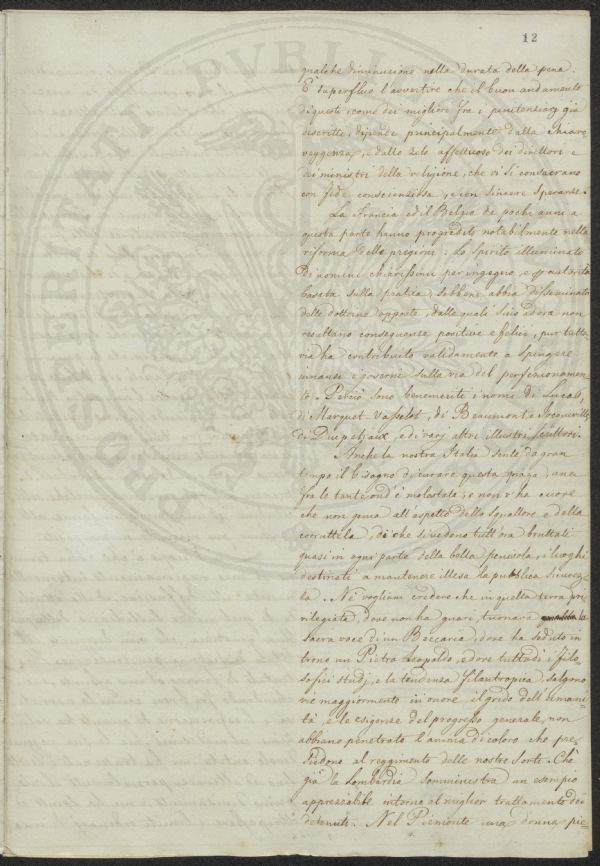 12
qualche diminuzione nella durata della pena.
È superfluo l'avvertire che il buon andamento
di questi, come dei migliori fra i penitenziarj già
descritti, dipende principalmente dalla chiaro
veggenza, e dallo zelo affettuoso dei direttori e
dei ministri della religione, che vi si consacrano
con fede conscienziosa, e con sincere speranze.
La Francia ed il Belgio da pochi anni a
questa parte hanno progredito notabilmente nella
riforma delle prigioni. Lo spirito illuminato
di uomini chiarissimi per ingegno, e per autorità
basata sulla pratica, sebbene abbia disseminato
delle dottrine opposte, dalle quali sino ad ora non
resultano conseguenze positive e felici, pur tutta
via ha contribuito validamente a spingere
innanzi i governi sulla via del perfezionamen-
to. Perciò sono benemeriti i nomi di Lucas,
di Marquet-Vasselot, di Beaumont e Tocqueville
di Ducpetjaux, e di varj altri illustri scrittori.
Anche la nostra Italia sente da gran
tempo il bisogno di curare questa piaga, una
fra le tante ond'è molestata, e non v'ha cuore
che non gema all'aspetto dello squallore e della
corruttela, di che si vedono tutt'ora bruttati
quasi in ogni parte della bella penisola, i luoghi
destinati a mantenere illesa la pubblica sicurez-
za. Nè vogliam credere che in quella terra pri
vilegiata, dove non ha guari, tuonava la
sacra voce di un Beccaria, dove ha seduto in
trono un Pietro Leopoldo, e dove tuttodì i filo
sofici studj, e la tendenza filantropica salgono
vie maggiormente in onore, il grido dell'umani-
tà, e le esigenze del progresso generale, non
abbiano penetrato l'anima di coloro che pre-
siedono al reggimento delle nostre sorti. Chè
già la Lombardia somministra un esempio
apprezzabile intorno al miglior trattamento dei
detenuti. Nel Piemonte una donna pie-